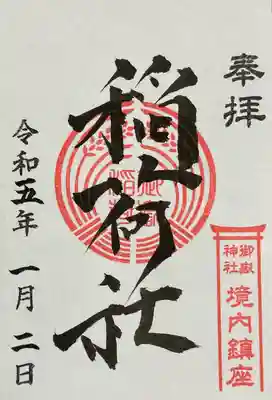 奉拝
御嶽神社
境内鎮座
稲荷社
令和五年 一月 二日